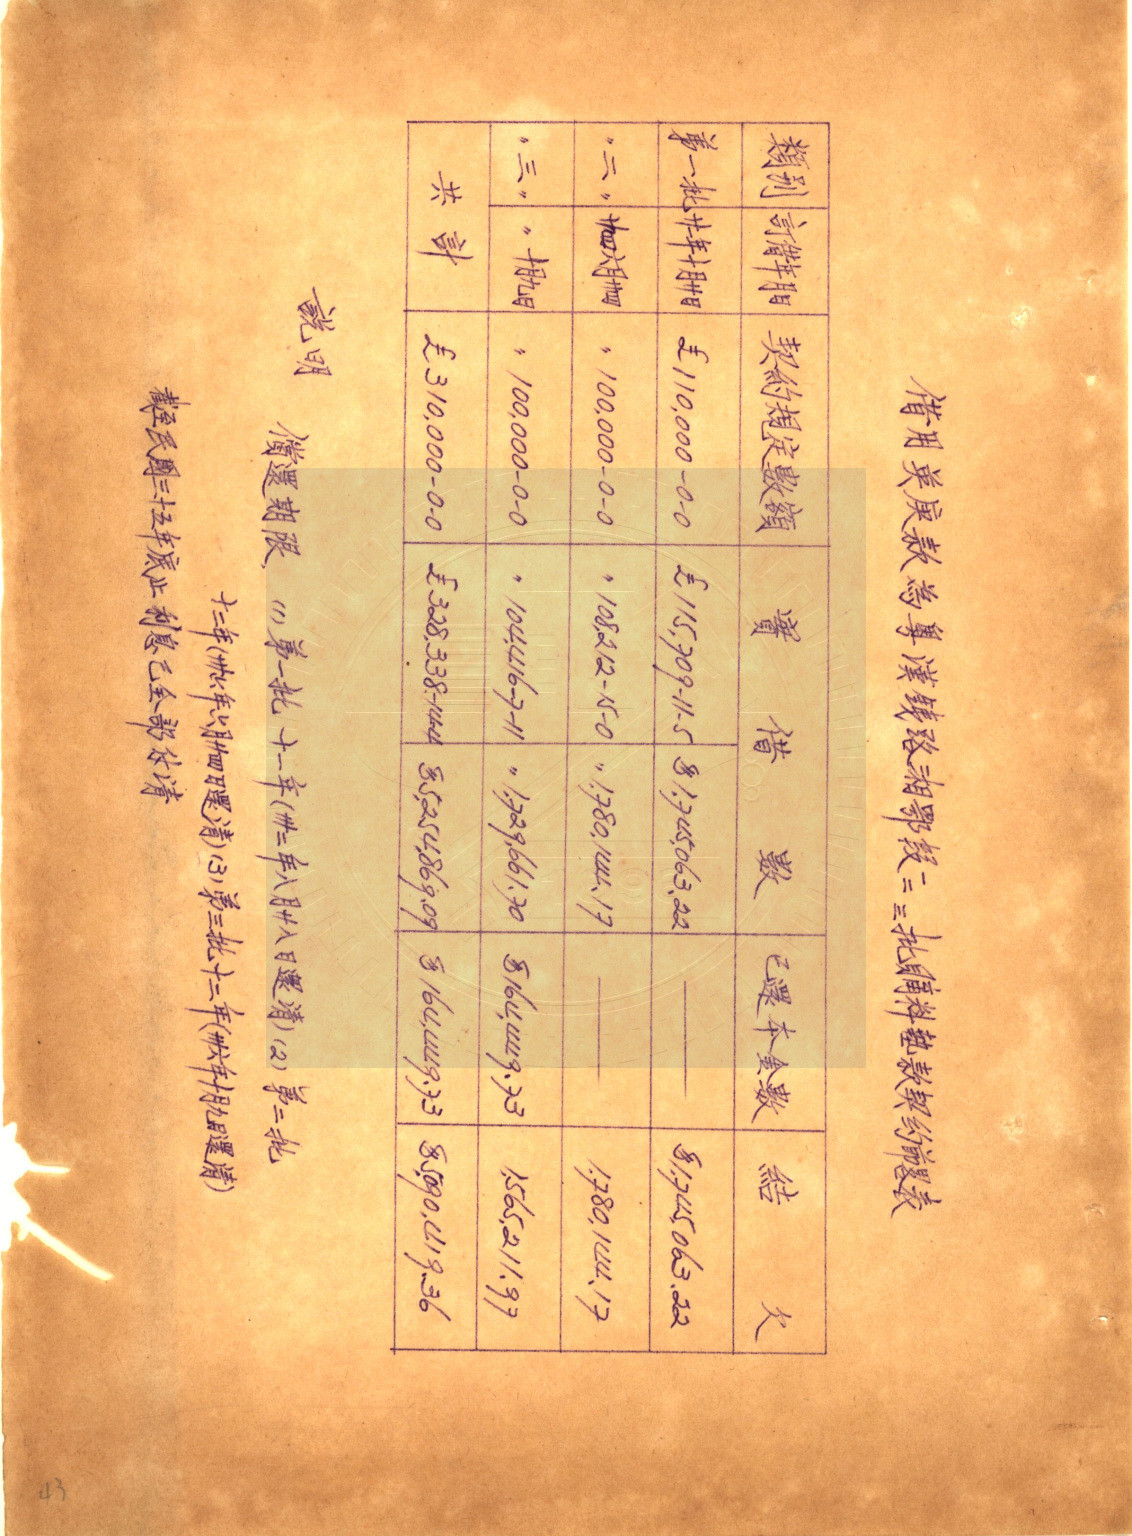 借用英庚款為粵漢鐵路湘鄂段一二三批購料墊款契約節畧表
類別 訂借年月日 契約規定數額 實借數 已還本金數 結欠
第一批 廿年十月廿日 £110,000-0-0 £115,709-11-5 $1,745,063.22 —— $1,745,063.22
〃二〃 廿四年六月廿四日 〃100,000-0-0 〃108,212-15-0 〃1,780,144.17 —— 1,780,144.17
〃三〃 〃十月九日 〃100,000-0-0 〃104,416-7-11 〃1,729,661.70 $164,449.73 1,565,211.97
共計 £310,000-0-0 £328,338-14-4 $5,254,869.09 $164,449.73 $5,090,419.36
說明
償還期限, (1)第一批十一年(卅二年八月廿八日還清)(2)第二批
十二年(卅六年六月廿四日還清)(3)第三批十二年(卅六年十月九日還清)
截至民國三十五年底止利息已全部付清
43